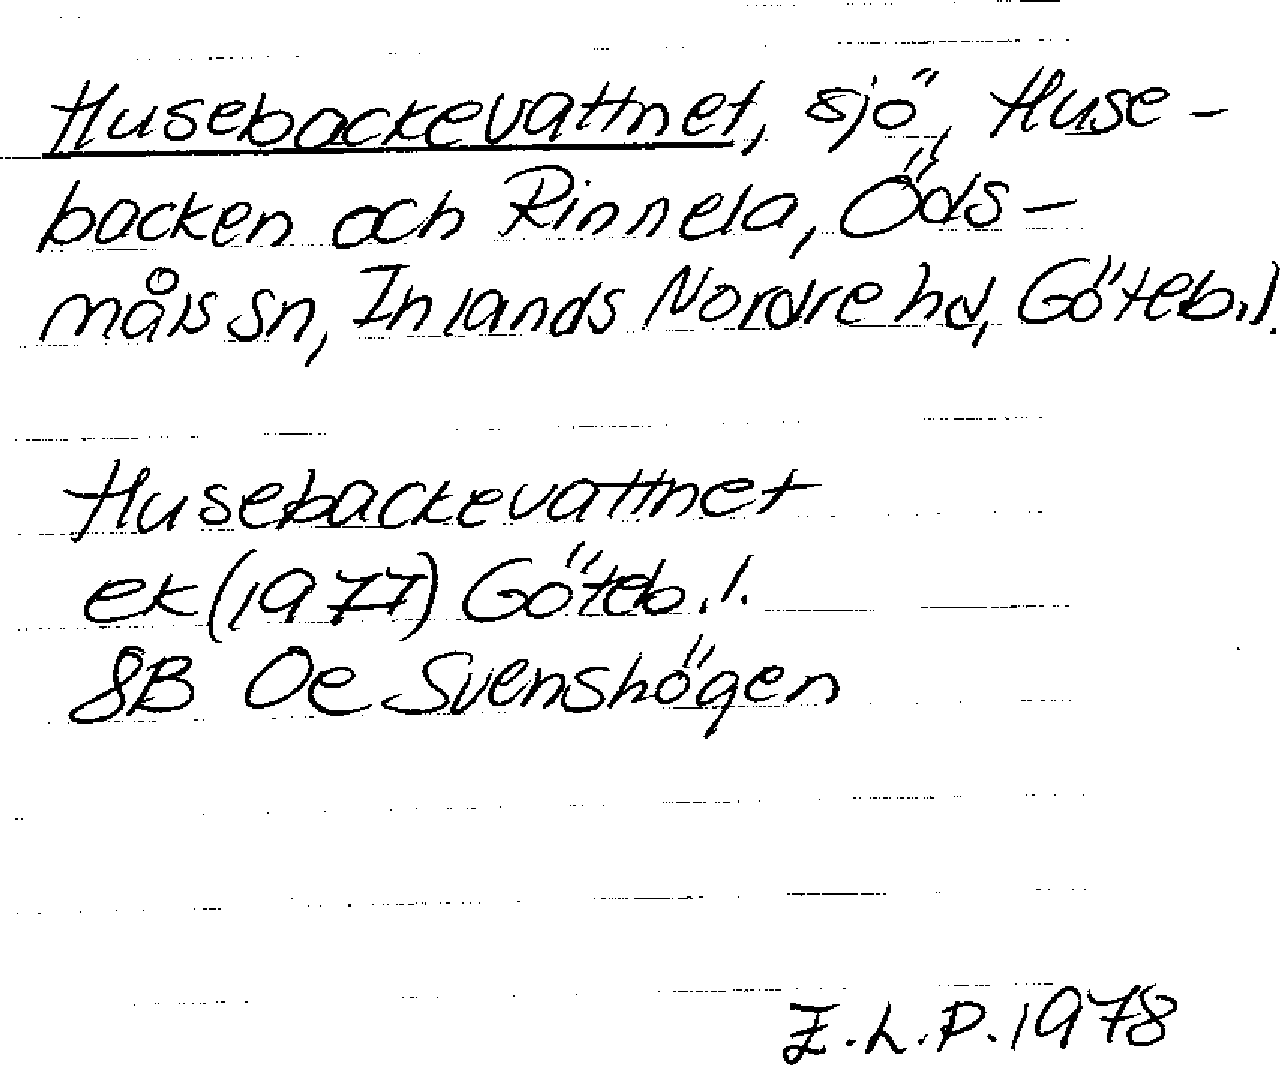 Husebackevattnet, sjö, Huse-
backen och Rinnela, Öds-
måls sn, Inlands Nordre hd, Göteb.l.
Husebackevattnet
ek (1977) Göteb.l.
8B 0e Svenshögen
E.L.P. 1978